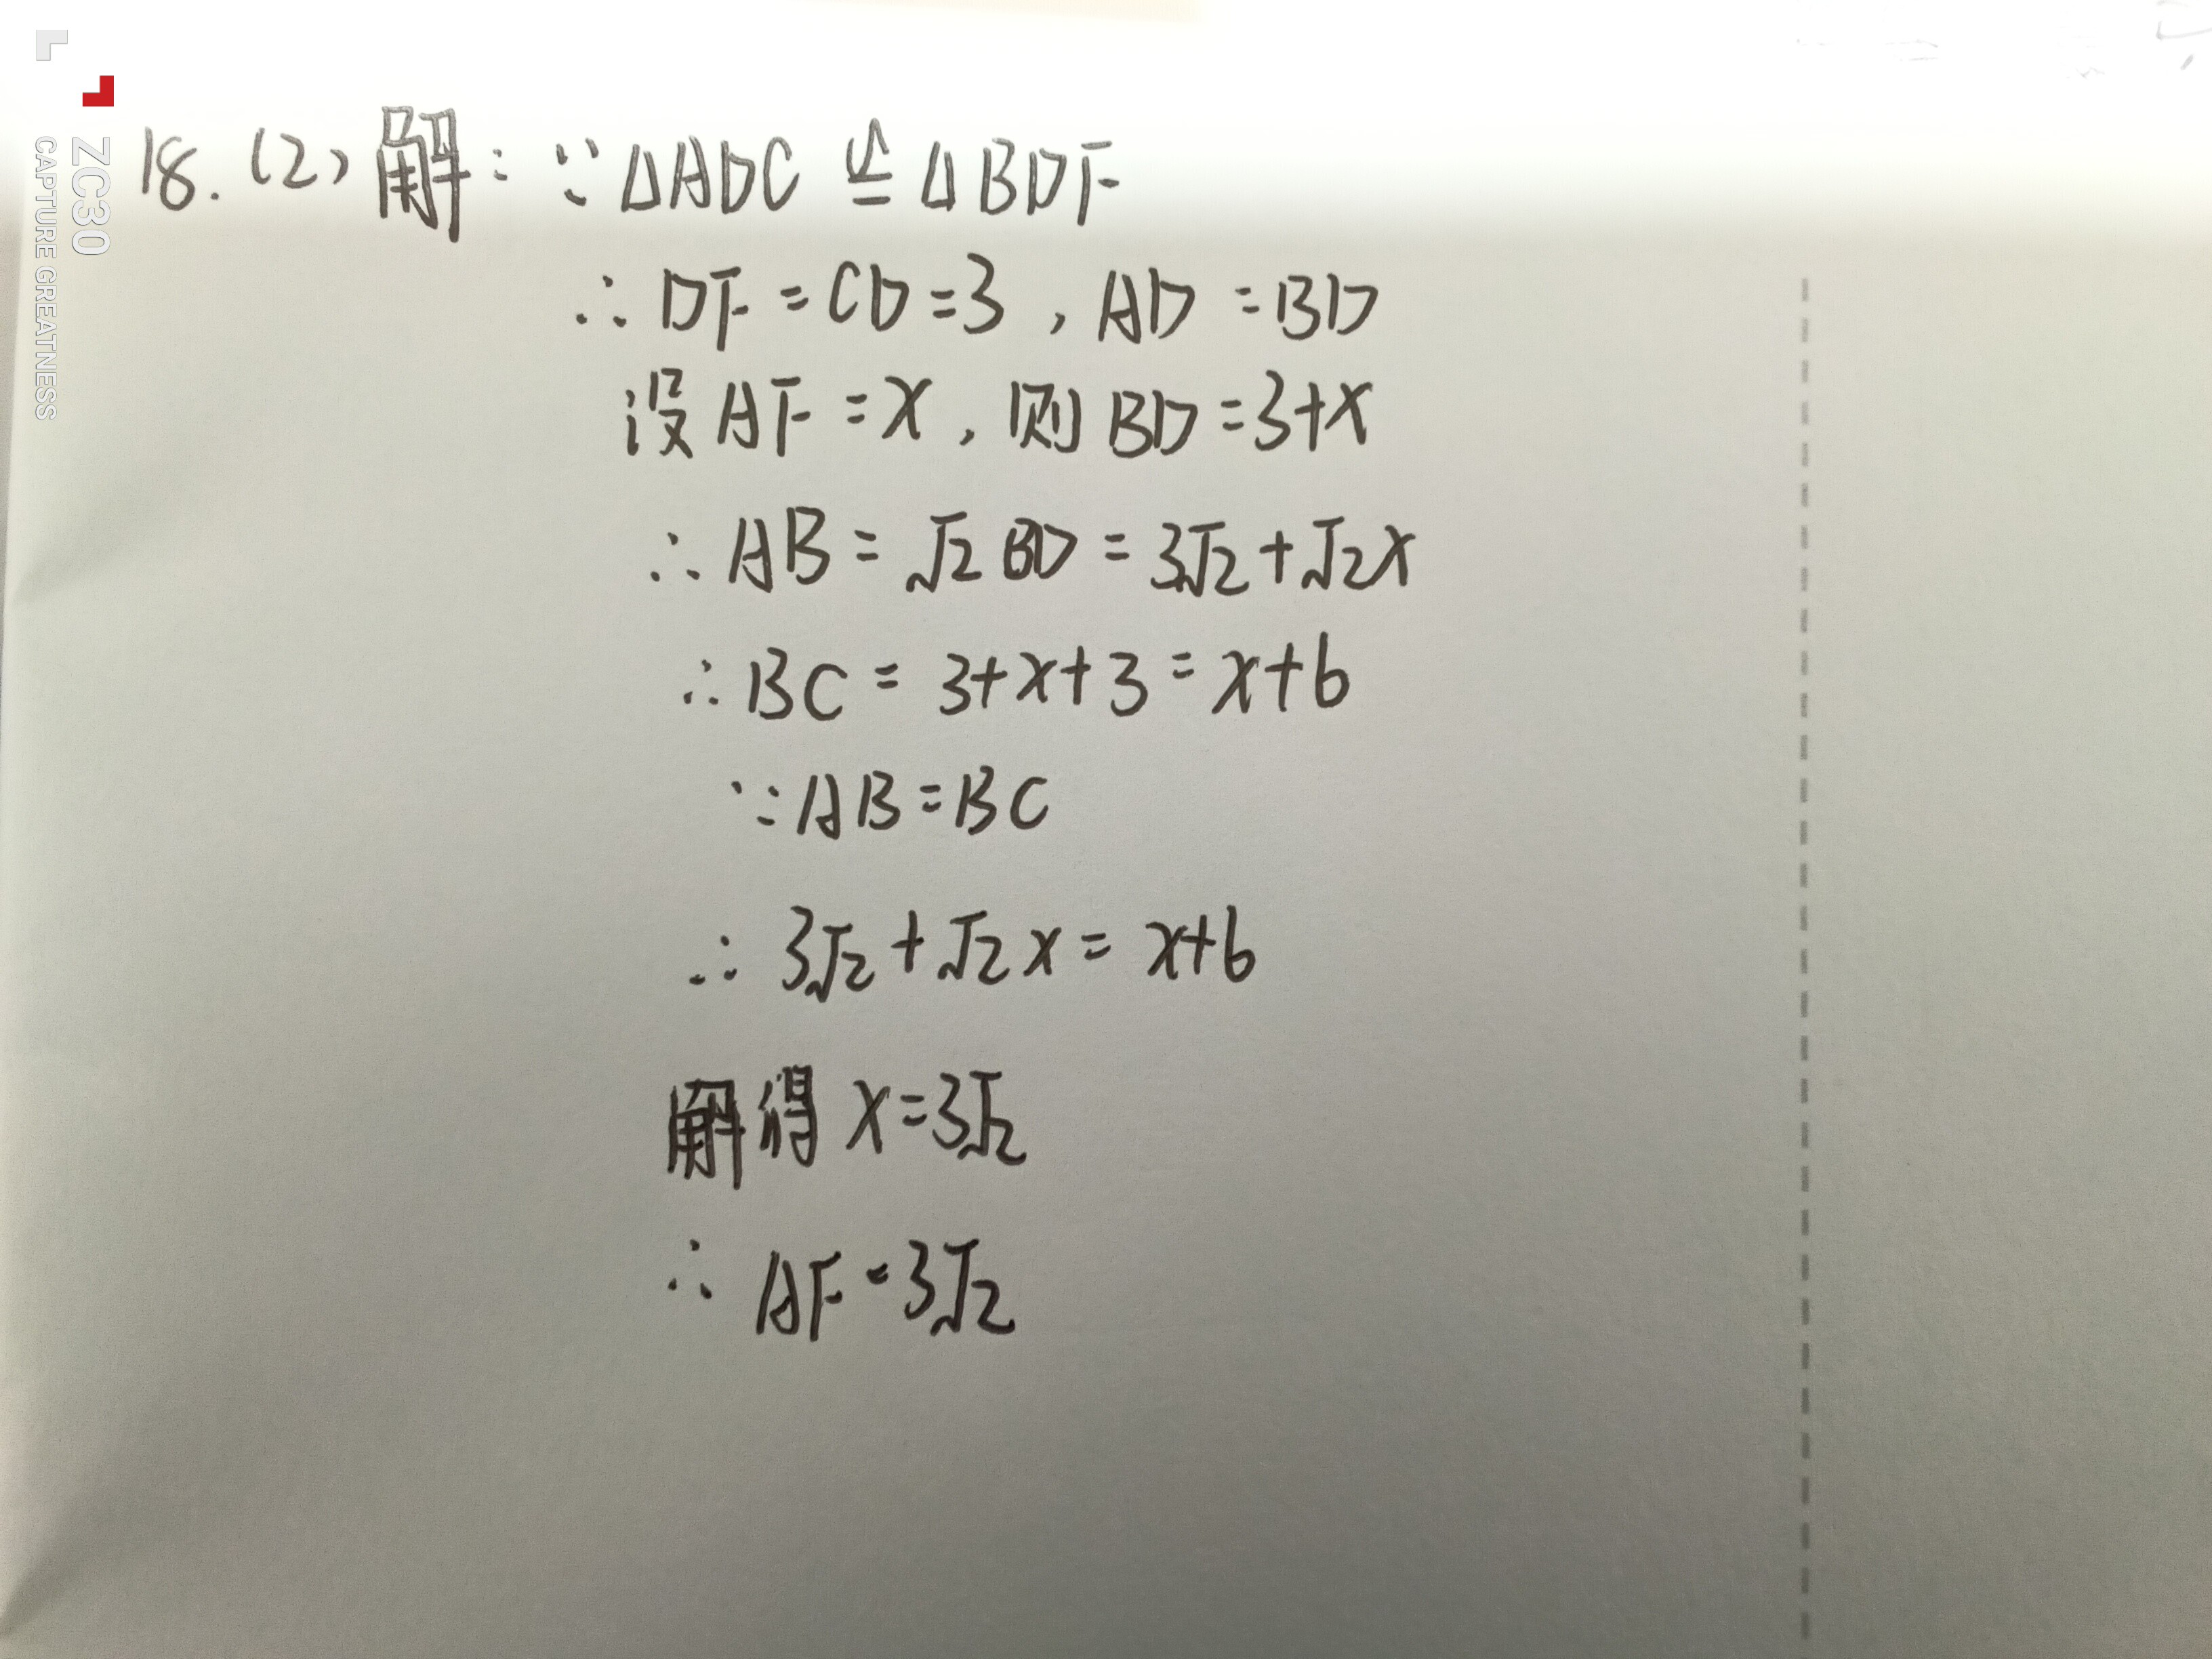 ZC30
CAPTURE GREATNESS
18. (2) 解: ∵ △ADC ≌ △BDF
∴ DF = CD = 3 , AD = BD
设 AF = x , 则 BD = 3+x
∴ AB = √2 BD = 3√2 + √2x
∴ BC = 3+x+3 = x+6
∵ AB = BC
∴ 3√2 + √2 x = x+6
解得 x = 3√2
∴ AF = 3√2